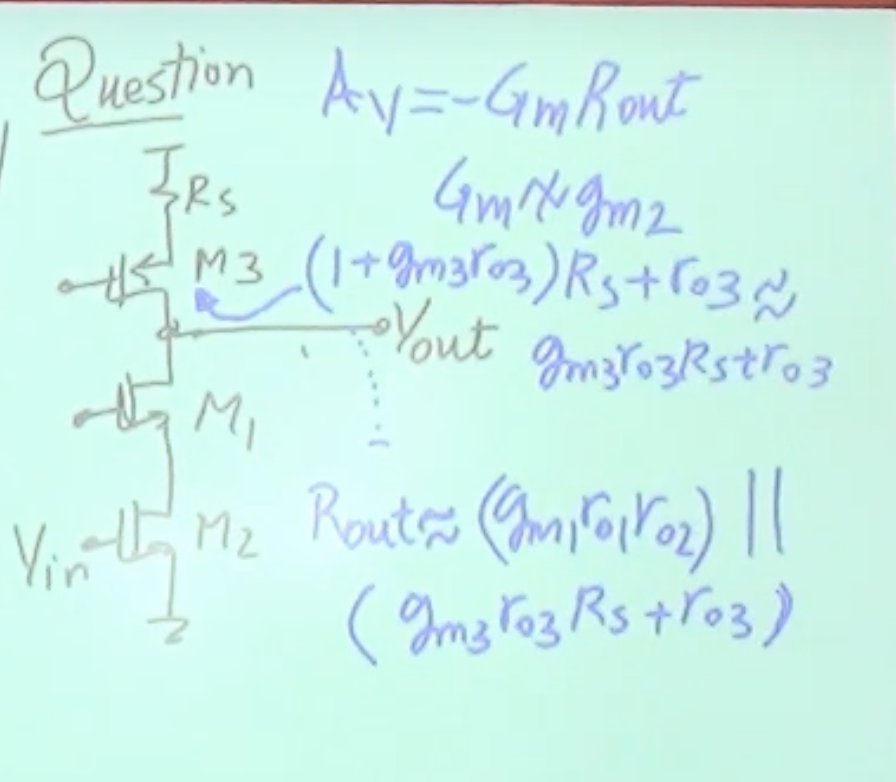 Question
Av = -GmRout
Rs
Gm ≈ gm2
M3
(1+gm3ro3)Rs+ro3 ≈
Vout
gm3ro3Rs+ro3
M1
Rout ≈ (gm1ro1ro2) ||
Vin
M2
(gm3ro3Rs+ro3)